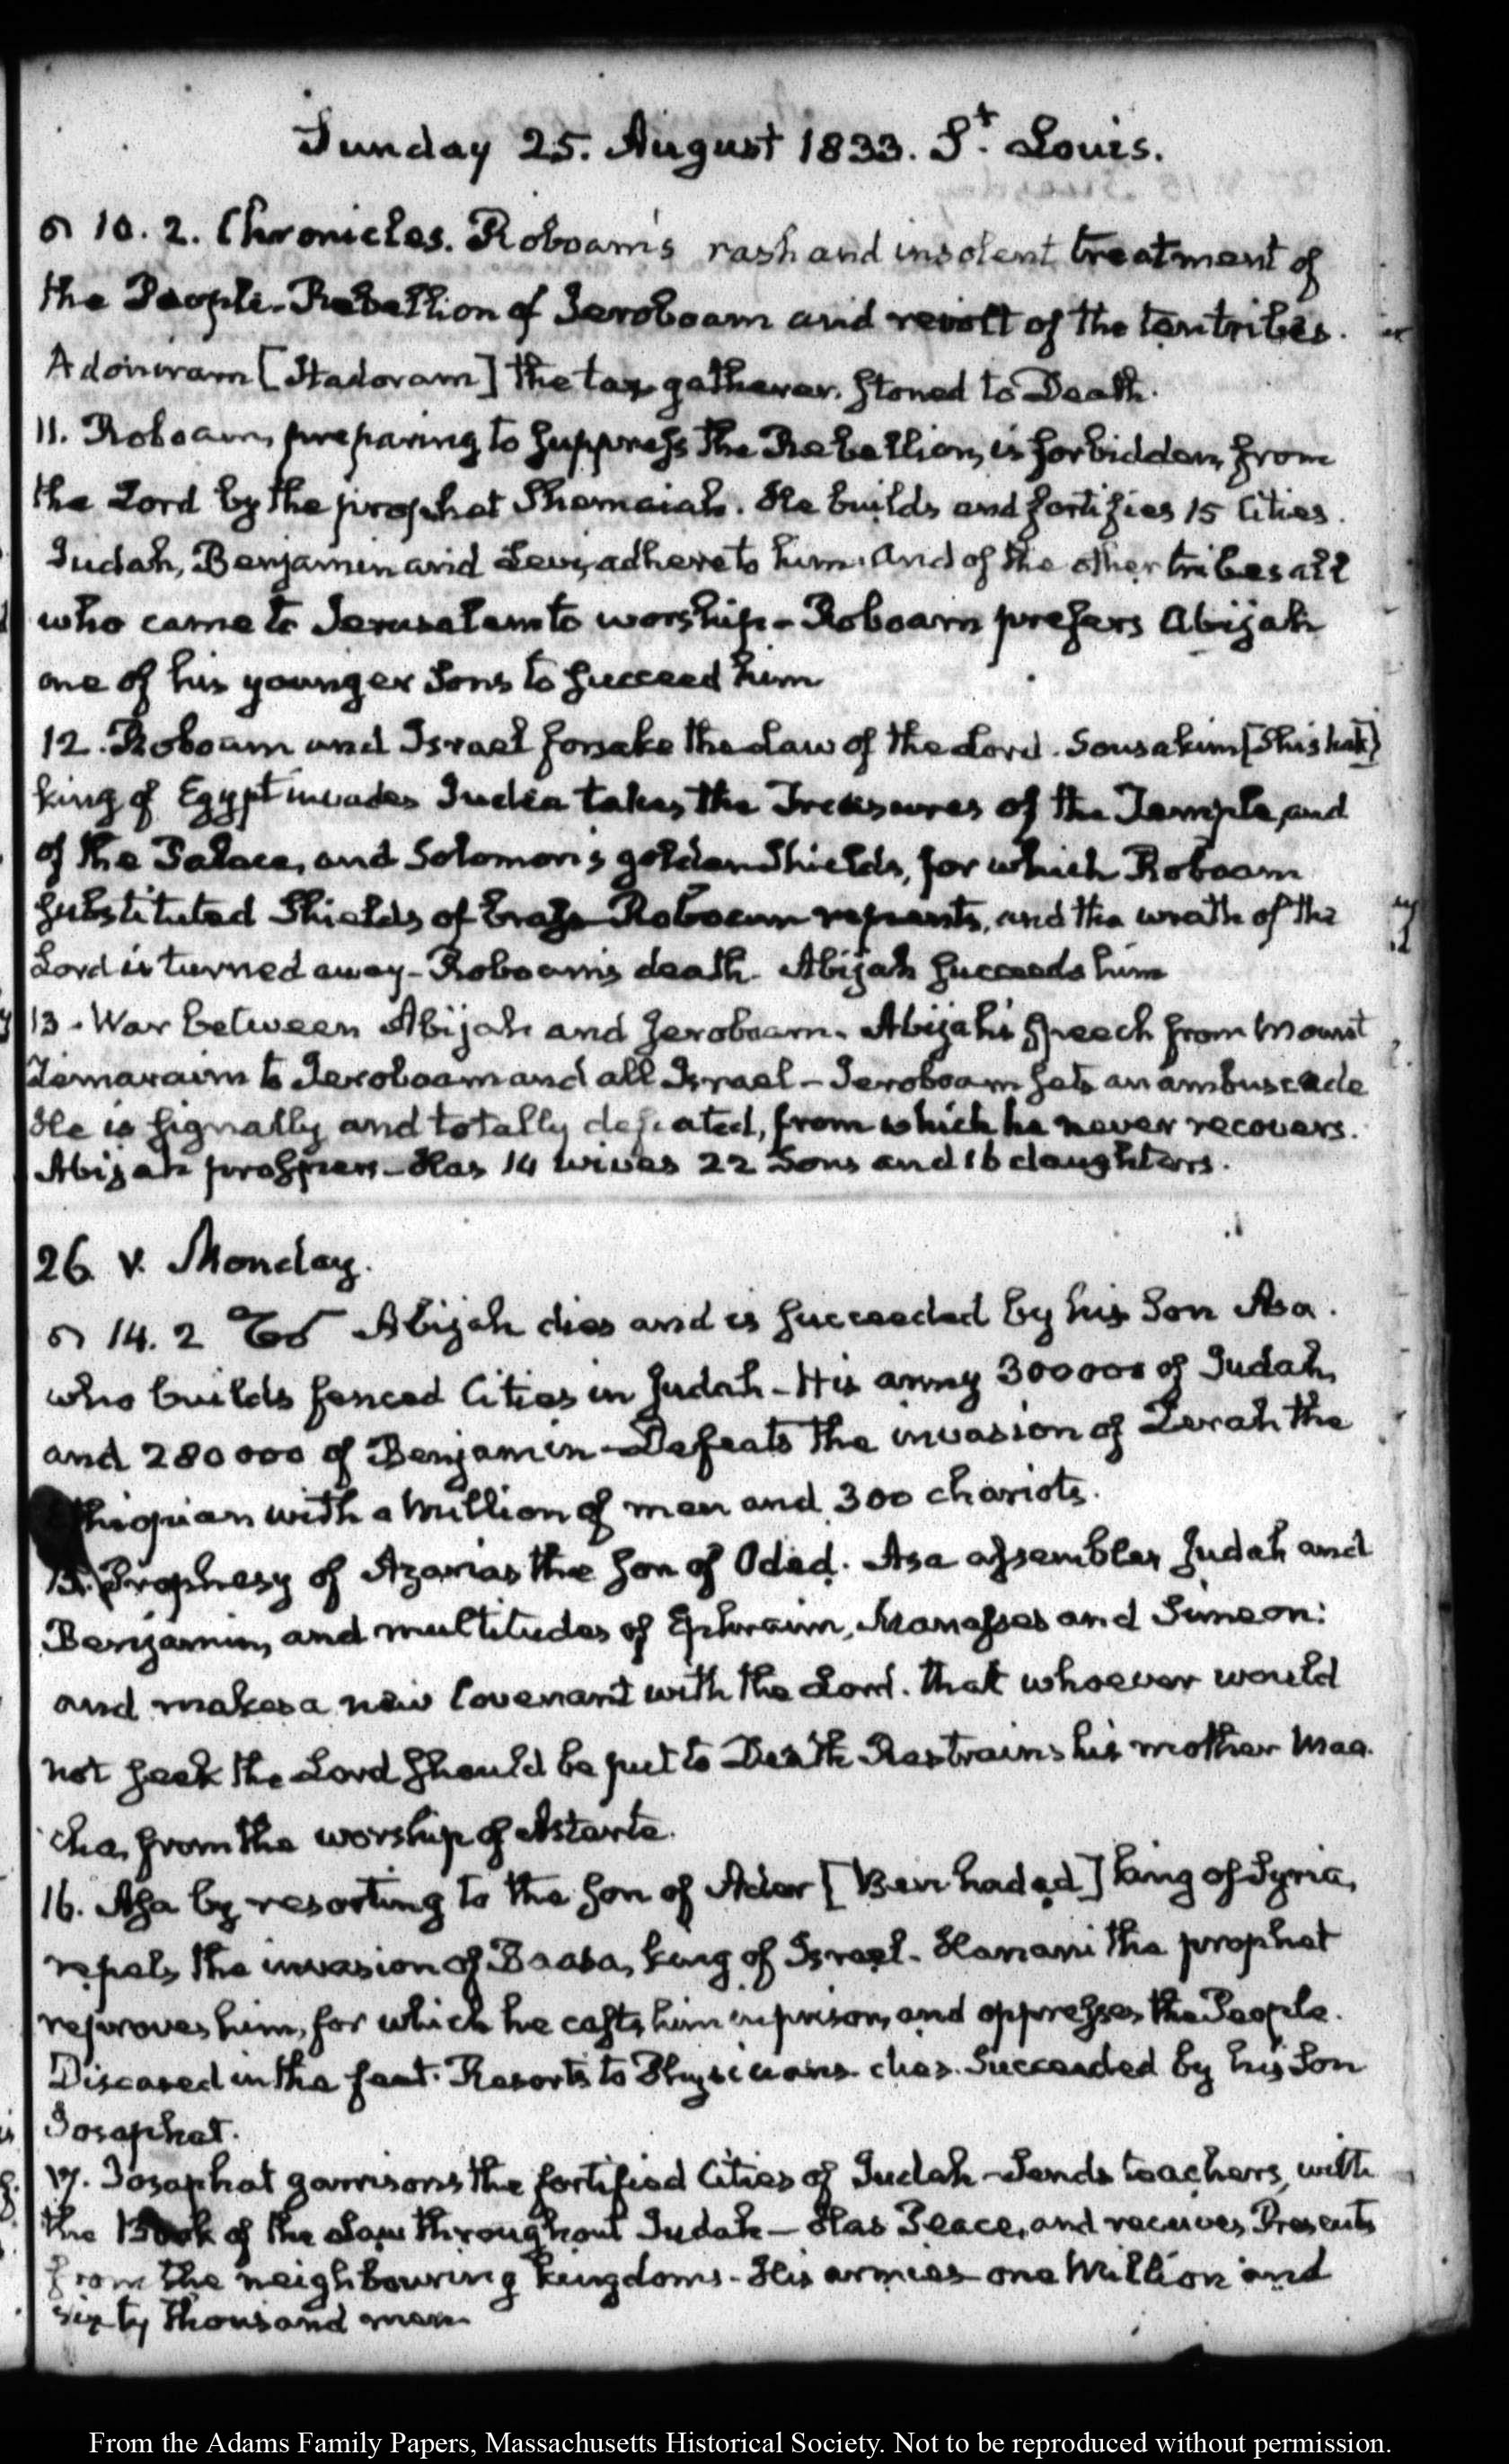 Sunday 25. August 1833. St. Louis.
10. 2. Chronicles. Roboam's rash and insolent treatment of
the People. Rebellion of Jeroboam and revolt of the ten tribes.
Adoniram [Hadoram] the tax gatherer. Stoned to Death.
11. Roboam, preparing to suppress the Rebellion, is forbidden, from
the Lord by the prophet Shemaiah. He builds and fortifies 15 Cities.
Judah, Benjamin and Levi, adhere to him. And of the other tribes all
who came to Jerusalem to worship - Roboam prefers Abijah
one of his younger Sons to succeed him
12. Roboam and Israel forsake the Law of the Lord. Sousakim [Shishak]
king of Egypt invades Judea takes the Treasures of the Temple, and
of the Palace, and Solomon's golden Shields, for which Roboam
substituted Shields of brass - Roboam repents, and the wrath of the
Lord is turned away - Roboam's death. Abijah succeeds him
13. War between Abijah and Jeroboam. Abijah's speech from Mount
Zemaraim to Jeroboam and all Israel - Jeroboam sets an ambuscade
He is signally and totally defeated, from which he never recovers.
Abijah prospers - Has 14 wives 22 Sons and 16 daughters.
26. V. Monday.
14. 2 Abijah dies and is succeeded by his Son Asa.
who builds fenced Cities in Judah - His army 300000 of Judah,
and 280000 of Benjamin - Defeats the invasion of Zerah the
thiopian with a Million of men and 300 chariots.
15. Prophesy of Azarias the Son of Oded. Asa assembles Judah and
Benjamin, and multitudes of Ephraim, Manasses and Simeon:
and makes a new Covenant with the Lord. that whoever would
not seek the Lord should be put to Death Restrains his mother Maa-
cha, from the worship of Astarte.
16. Asa by resorting to the Son of Ader [Ben-hadad] king of Syria,
repels the invasion of Baasa, king of Israel. Hanani the prophet
reproves him, for which he casts him in prison, and oppresses the People.
Diseased in the feet. Resorts to Physicians. dies. Succeeded by his Son
Josaphat.
17. Josaphat garrisons the fortified Cities of Judah - Sends teachers, with
the Book of the Law throughout Judah - Has Peace, and receives Presents
from the neighbouring kingdoms. His armies one Million and
sixty thousand men
From the Adams Family Papers, Massachusetts Historical Society. Not to be reproduced without permission.